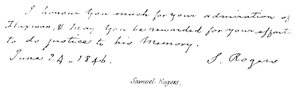 I honour you much for your admiration of
Flaxman, & may you be rewarded for your effort
to do justice to his Memory.
June 24. 1846. S. Rogers
Samuel Rogers.